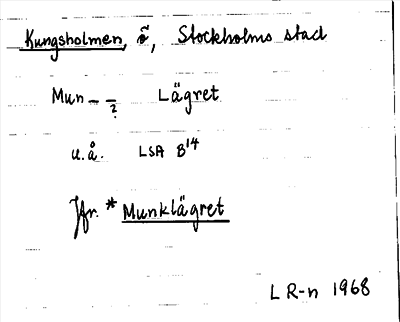 Kungsholmen, ö, Stockholms stad
Mun – – ? Lägret
u.å. LSA B14
Jfr. * Munklägret
L R-n 1968